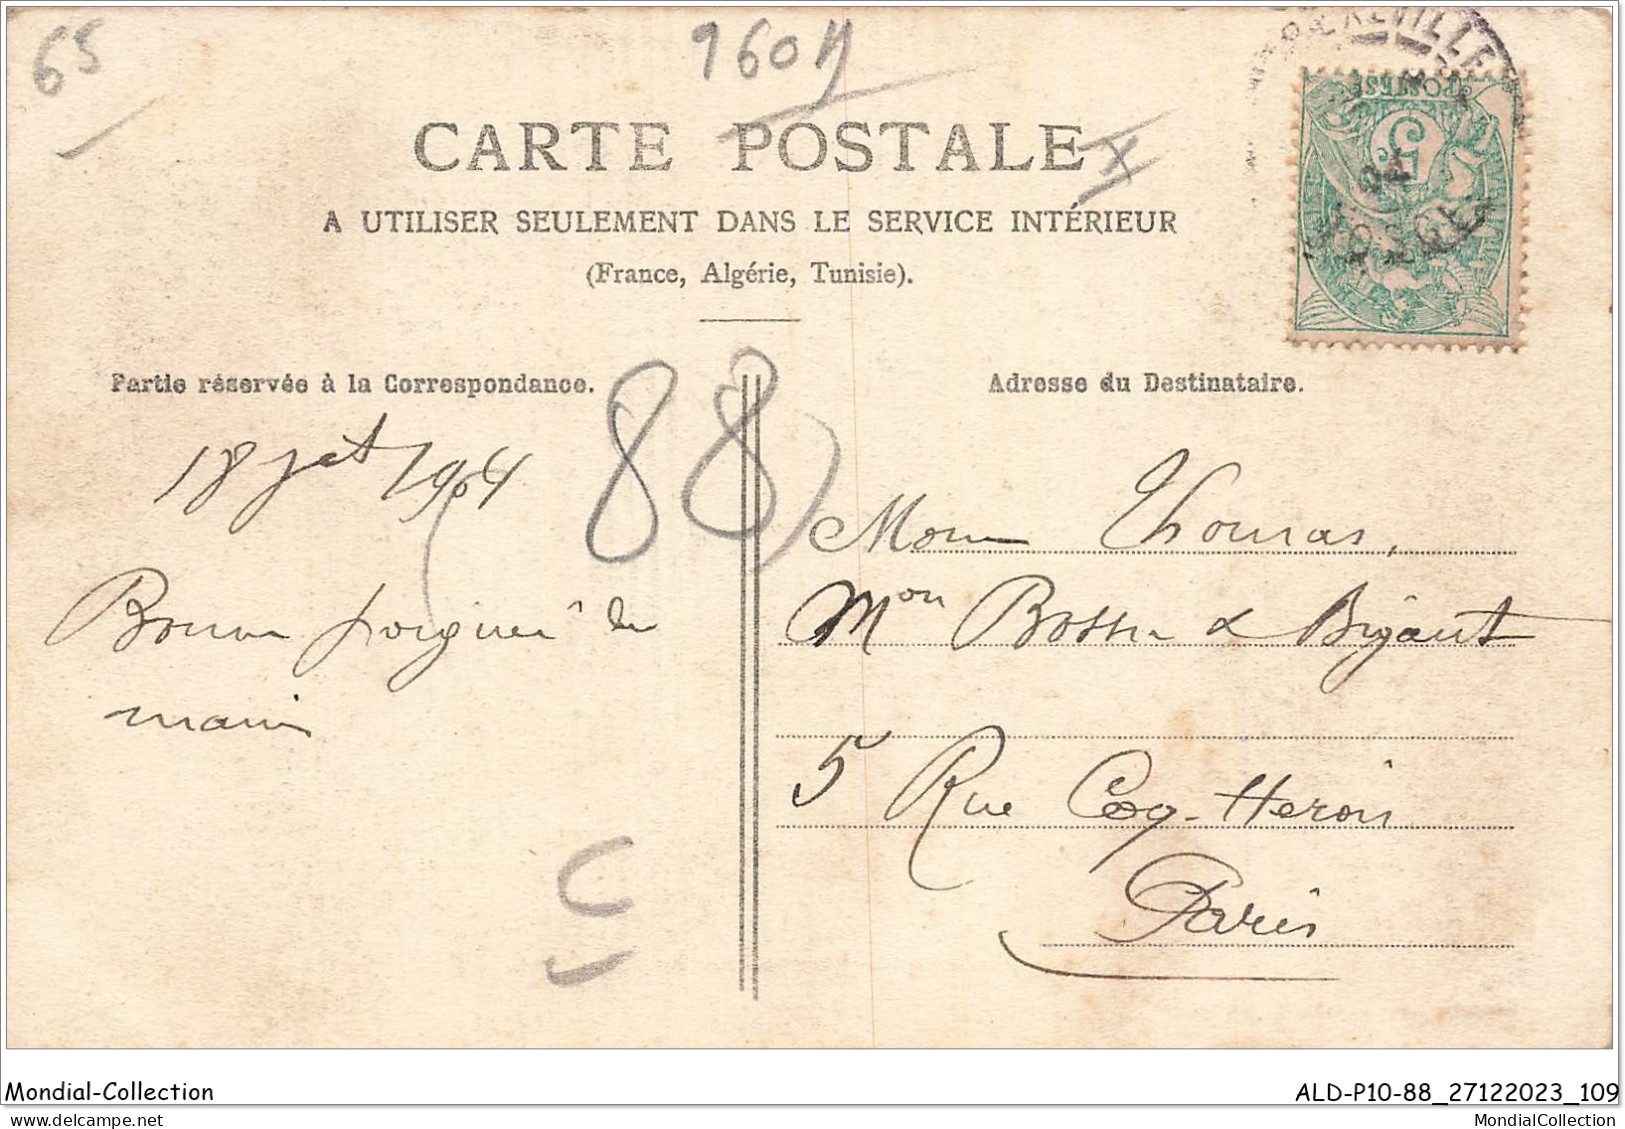 65
960
CARTE POSTALE
A UTILISER SEULEMENT DANS LE SERVICE INTÉRIEUR
(France, Algérie, Tunisie).
POSTES
5
Partie réservée à la Correspondance.
Adresse du Destinataire.
18 jet 1904
(88)
Bonne poignée de
main
C
Thomas,
Mon & Bigaut
5 Rue Coq-Heron
Paris
Mondial-Collection
ALD-P10-88_27122023_109
MondialCollection